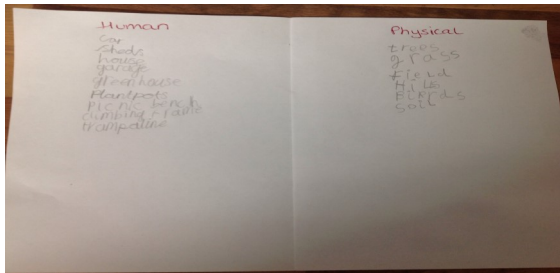 Human
Car
Sheds
house
garage
greenhouse
Plantpots
Picnic bench
climbing frame
trampoline
Physical
trees
grass
Field
Hills
Birds
soil